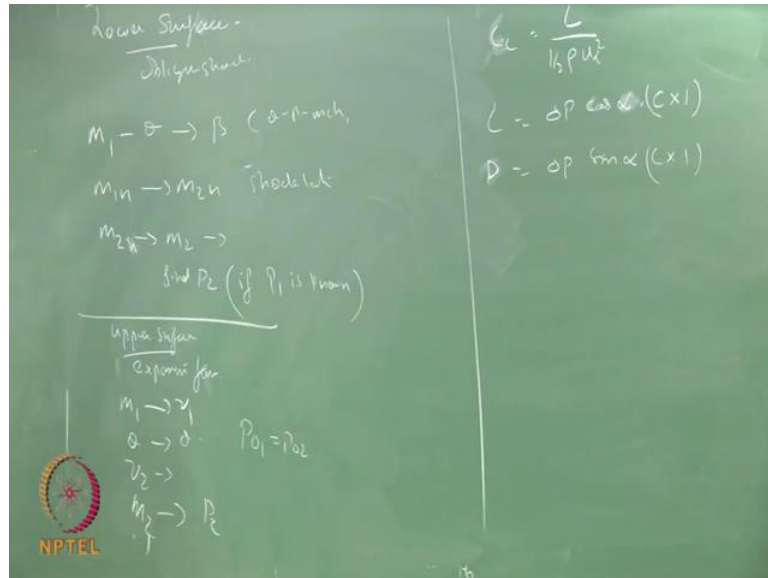 Lower Surface-
Oblique shock
M₁ - θ → β (θ-β-mch,
M₁ₙ → M₂ₙ
M₂ₙ → M₂ →
find P₂ (if P₁ is known)
upper surface
expansion fan
M₁ → ν₁
θ → α
P₀₁ = P₀₂
ν₂ →
M₂ → P₂
C_L = L / ½ρU²
L = ΔP cos α. (C×1)
D = ΔP sin α (C×1)
NPTEL